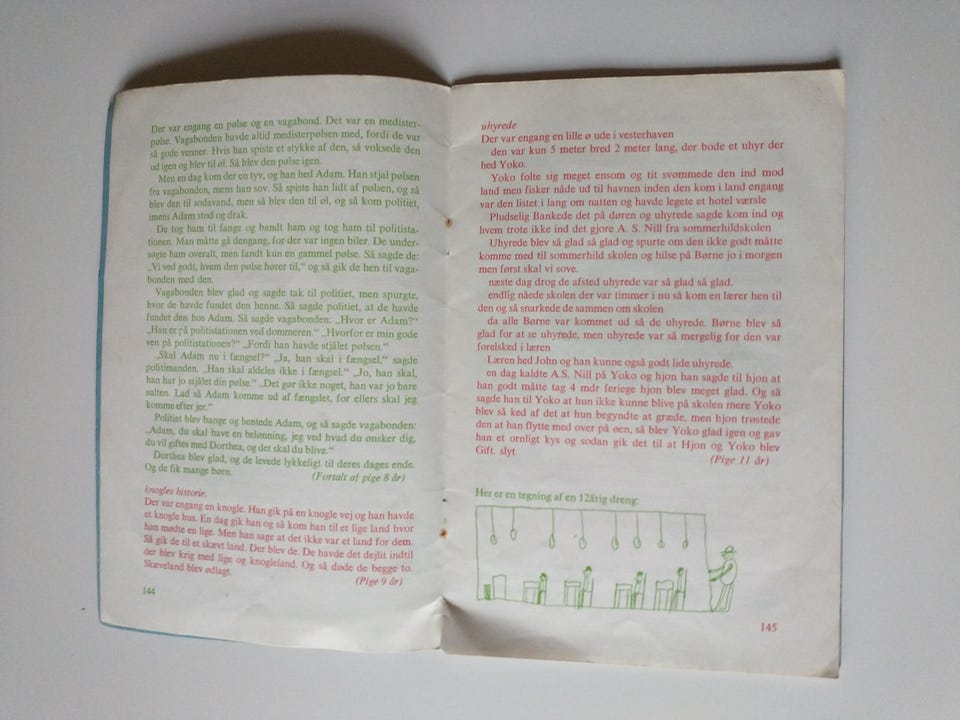 Der var engang en pølse og en vagabond. Det var en medister-
pølse. Vagabonden havde altid medisterpølsen med, fordi de var
så gode venner. Hvis han spiste et stykke af den, så voksede den
ud igen og blev til øl. Så blev den pølse igen.
Men en dag kom der en tyv, og han hed Adam. Han stjal pølsen
fra vagabonden, mens han sov. Så spiste han lidt af pølsen, og så
blev den til sodavand, men så blev den til øl, og så kom politiet,
imens Adam stod og drak.
De tog ham til fange og bandt ham og tog ham til politista-
tionen. Man måtte gå dengang, for der var ingen biler. De under-
søgte ham overalt, men fandt kun en gammel pølse. Så sagde de:
„Vi ved godt, hvem den pølse hører til,“ og så gik de hen til vaga-
bonden med den.
Vagabonden blev glad og sagde tak til politiet, men spurgte,
hvor de havde fundet den henne. Så sagde politiet, at de havde
fundet den hos Adam. Så sagde vagabonden: „Hvor er Adam?“
„Han er på politistationen ved dommeren.“ „Hvorfor er min gode
ven på politistationen?“ „Fordi han havde stjålet pølsen.“
„Skal Adam nu i fængsel?“ „Ja, han skal i fængsel,“ sagde
politimanden. „Han skal aldeles ikke i fængsel.“ „Jo, han skal,
han har jo stjålet din pølse.“ „Det gør ikke noget, han var jo bare
sulten. Lad så Adam komme ud af fængslet, for ellers skal jeg
komme efter jer.“
Politiet blev bange og hentede Adam, og så sagde vagabonden:
„Adam, du skal have en belønning, jeg ved hvad du ønsker dig,
du vil giftes med Dorthea, og det skal du blive.“
Dorthea blev glad, og de levede lykkeligt til deres dages ende.
Og de fik mange børn. (Fortalt af pige 8 år)
knogles historie.
Der var engang en knogle. Han gik på en knogle vej og han havde
et knogle hus. En dag gik han og så kom han til et lige land hvor
han mødte en lige. Men han sage at det ikke var et land for dem.
Så gik de til et skævt land. Der blev de. De havde det dejlit indtil
der blev krig med lige og knogleland. Og så døde de begge to.
Skæveland blev ødlagt. (Pige 9 år)
144
uhyrede
Der var engang en lille ø ude i vesterhaven
den var kun 5 meter bred 2 meter lang, der bode et uhyr der
hed Yoko.
Yoko folte sig meget ensom og tit svømmede den ind mod
land men fisker nåde ud til havnen inden den kom i land engang
var den listet i lang om natten og havde legete et hotel værsle
Pludselig Bankede det på døren og uhyrede sagde kom ind og
hvem trote ikke ind det gjore A. S. Nill fra sommerhildskolen
Uhyrede blev så glad så glad og spurte om den ikke godt måtte
komme med til sommerhild skolen og hilse på Børne jo i morgen
men først skal vi sove.
næste dag drog de afsted uhyrede var så glad så glad.
endlig nåede skolen der var timmer i nu så kom en lærer hen til
den og så snarkede de sammen om skolen
da alle Børne var kommet ud så de uhyrede. Børne blev så
glad for at se uhyrede, men uhyrede var så mergelig for den var
forelsked i læren
Læren hed John og han kunne også godt lide uhyrede.
en dag kaldte A.S. Nill på Yoko og hjon han sagde til hjon at
han godt måtte tag 4 mdr feriege hjon blev meget glad. Og så
sagde han til Yoko at hun ikke kunne blive på skolen mere Yoko
blev så ked af det at hun begyndte at græde, men hjon trøstede
den at han flytte med over på øen, så blev Yoko glad igen og gav
han et ornligt kys og sodan gik det til at Hjon og Yoko blev
Gift. slyt (Pige 11 år)
Her er en tegning af en 12årig dreng:
145